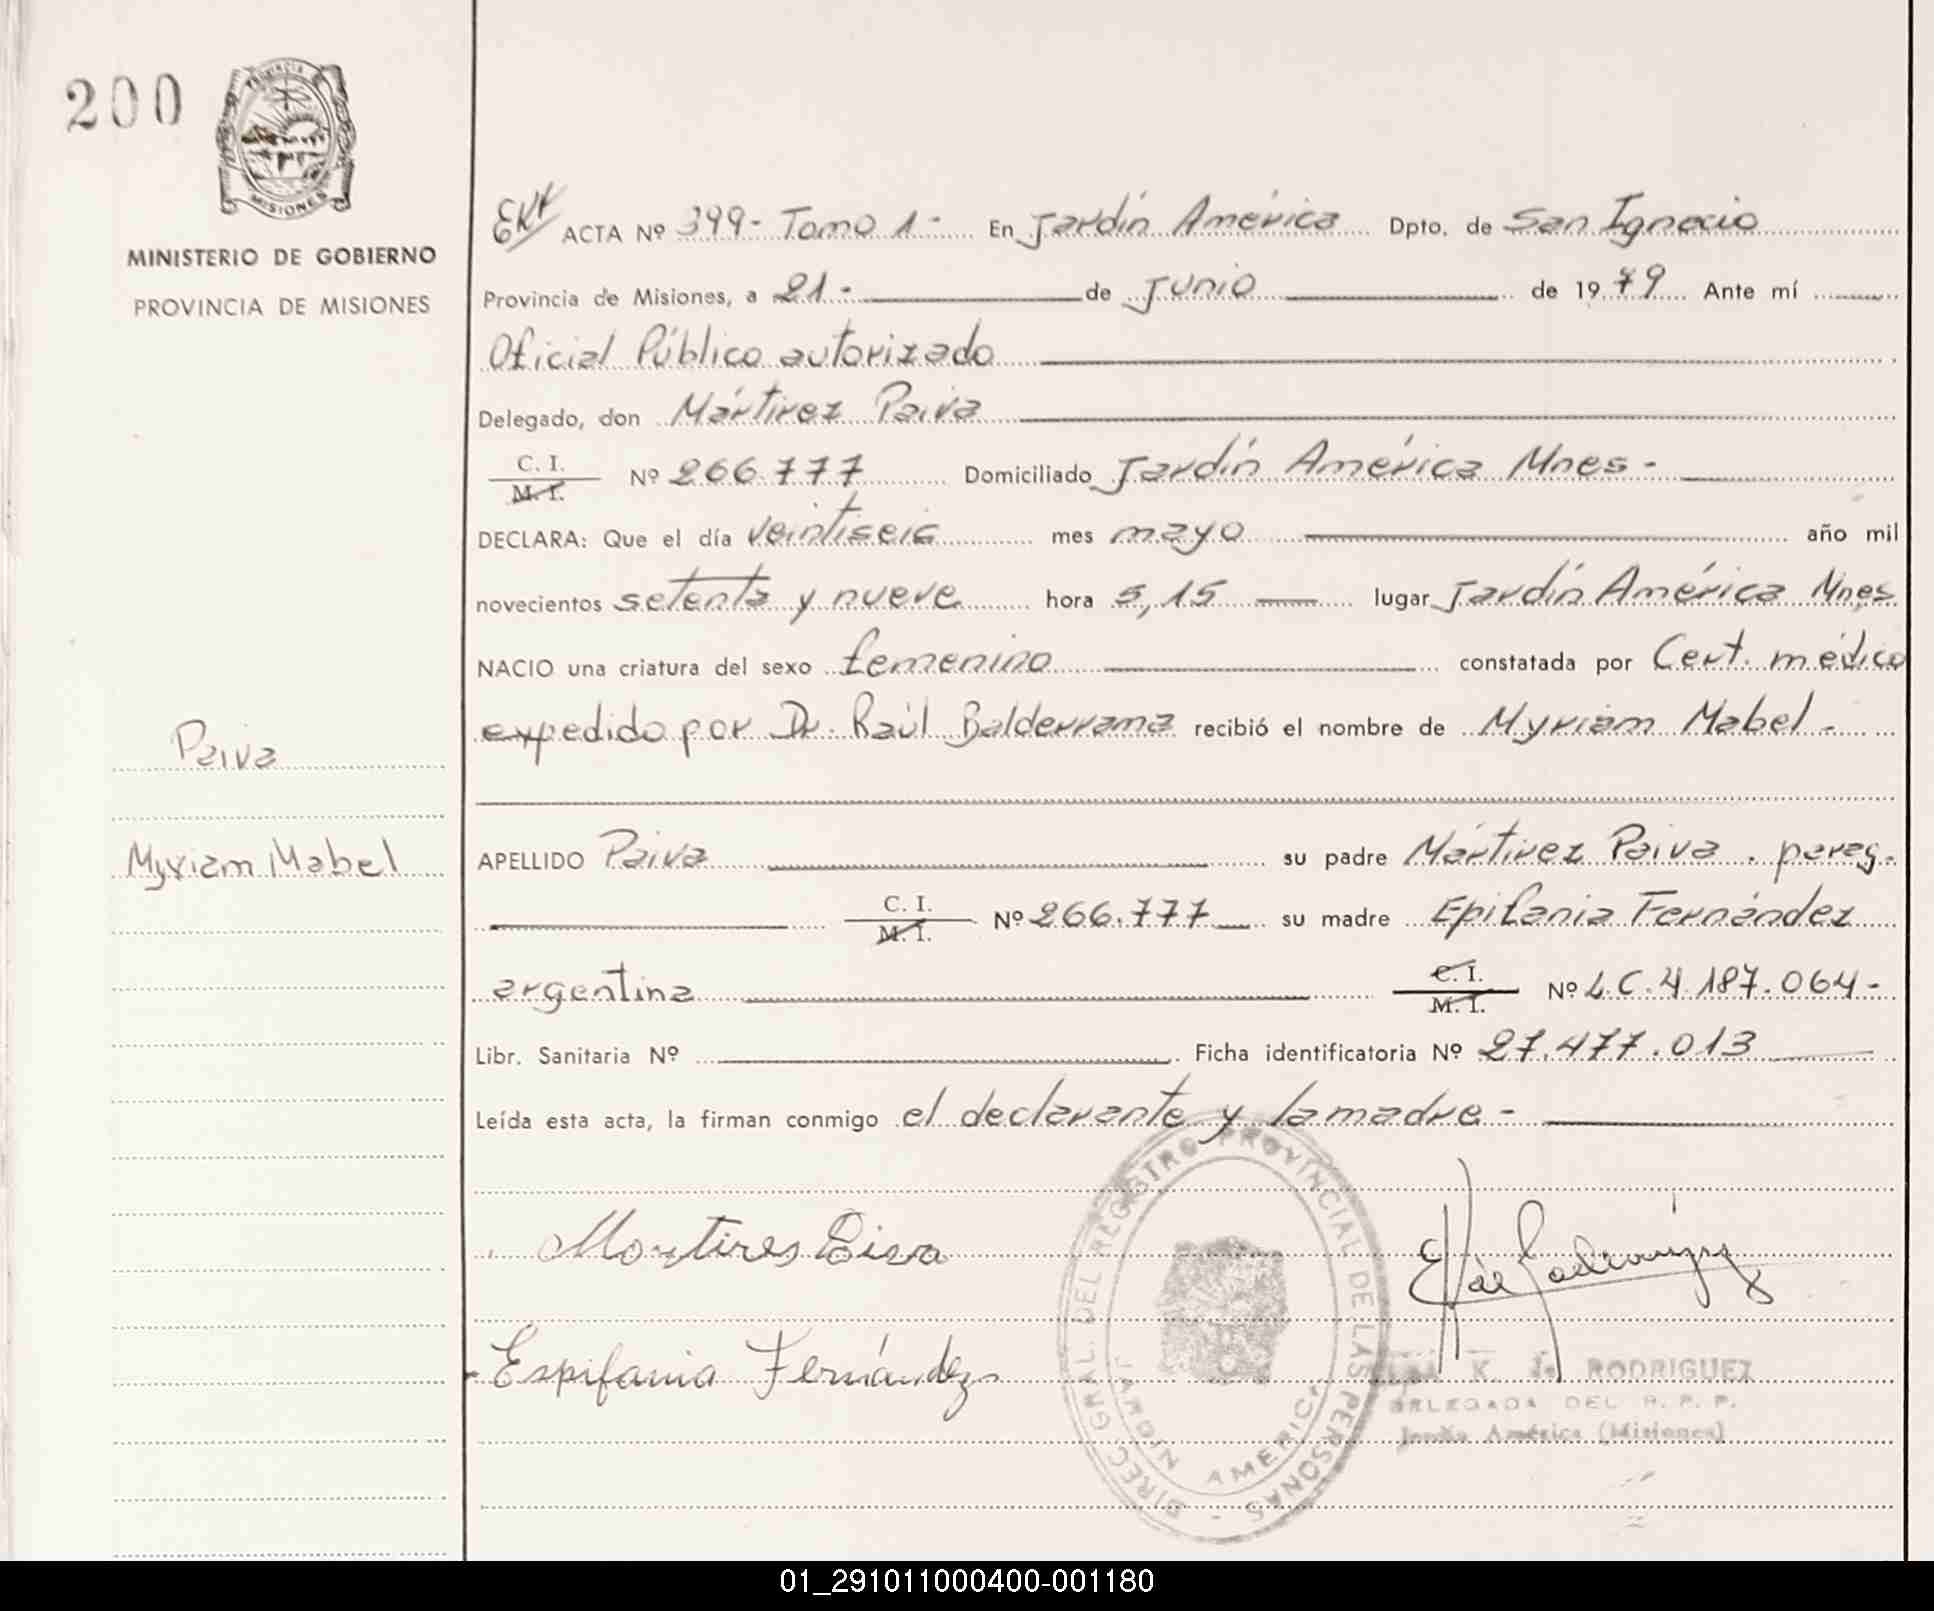 200
PROVINCIA
MISIONES
MINISTERIO DE GOBIERNO
PROVINCIA DE MISIONES
Paiva
Myriam Mabel
ACTA Nº 399- Tomo 1- En Jardín América Dpto. de San Ignacio
Provincia de Misiones, a 21- de Junio de 1979 Ante mí
Oficial Público autorizado
Delegado, don Mártirez Paiva
C. I.
M. I. Nº 266.777 Domiciliado Jardín América Mnes-
DECLARA: Que el día veintiseis mes mayo año mil
novecientos setenta y nueve hora 5,15 lugar Jardín América Mnes
NACIO una criatura del sexo femenino constatada por Cert. médico
expedido por Dr. Raúl Balderrama recibió el nombre de Myriam Mabel -
APELLIDO Paiva su padre Mártirez Paiva. parag.
C. I.
M. I. Nº 266.777 su madre Epifania Fernández
argentina C. I.
M. I. Nº L.C.4.187.064-
Libr. Sanitaria Nº Ficha identificatoria Nº 27.477.013
Leída esta acta, la firman conmigo el declarante y la madre-
Martires Paiva
Espifania Fernández
DIREC. GRAL. DEL REGISTRO PROVINCIAL DE LAS PERSONAS -
JARDIN AMERICA
K. de RODRIGUEZ
DELEGADA DEL R. P. P.
Jardín América (Misiones)
01_291011000400-001180